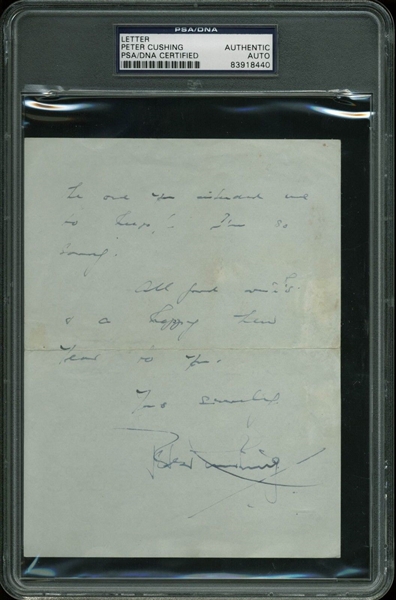 PSA/DNA
LETTER
PETER CUSHING
PSA/DNA CERTIFIED
AUTHENTIC
AUTO
83918440
the one you intended me
to keep! I'm so
sorry.
All good wishes
& a happy New
Year to you.
Yours sincerely
Peter Cushing.